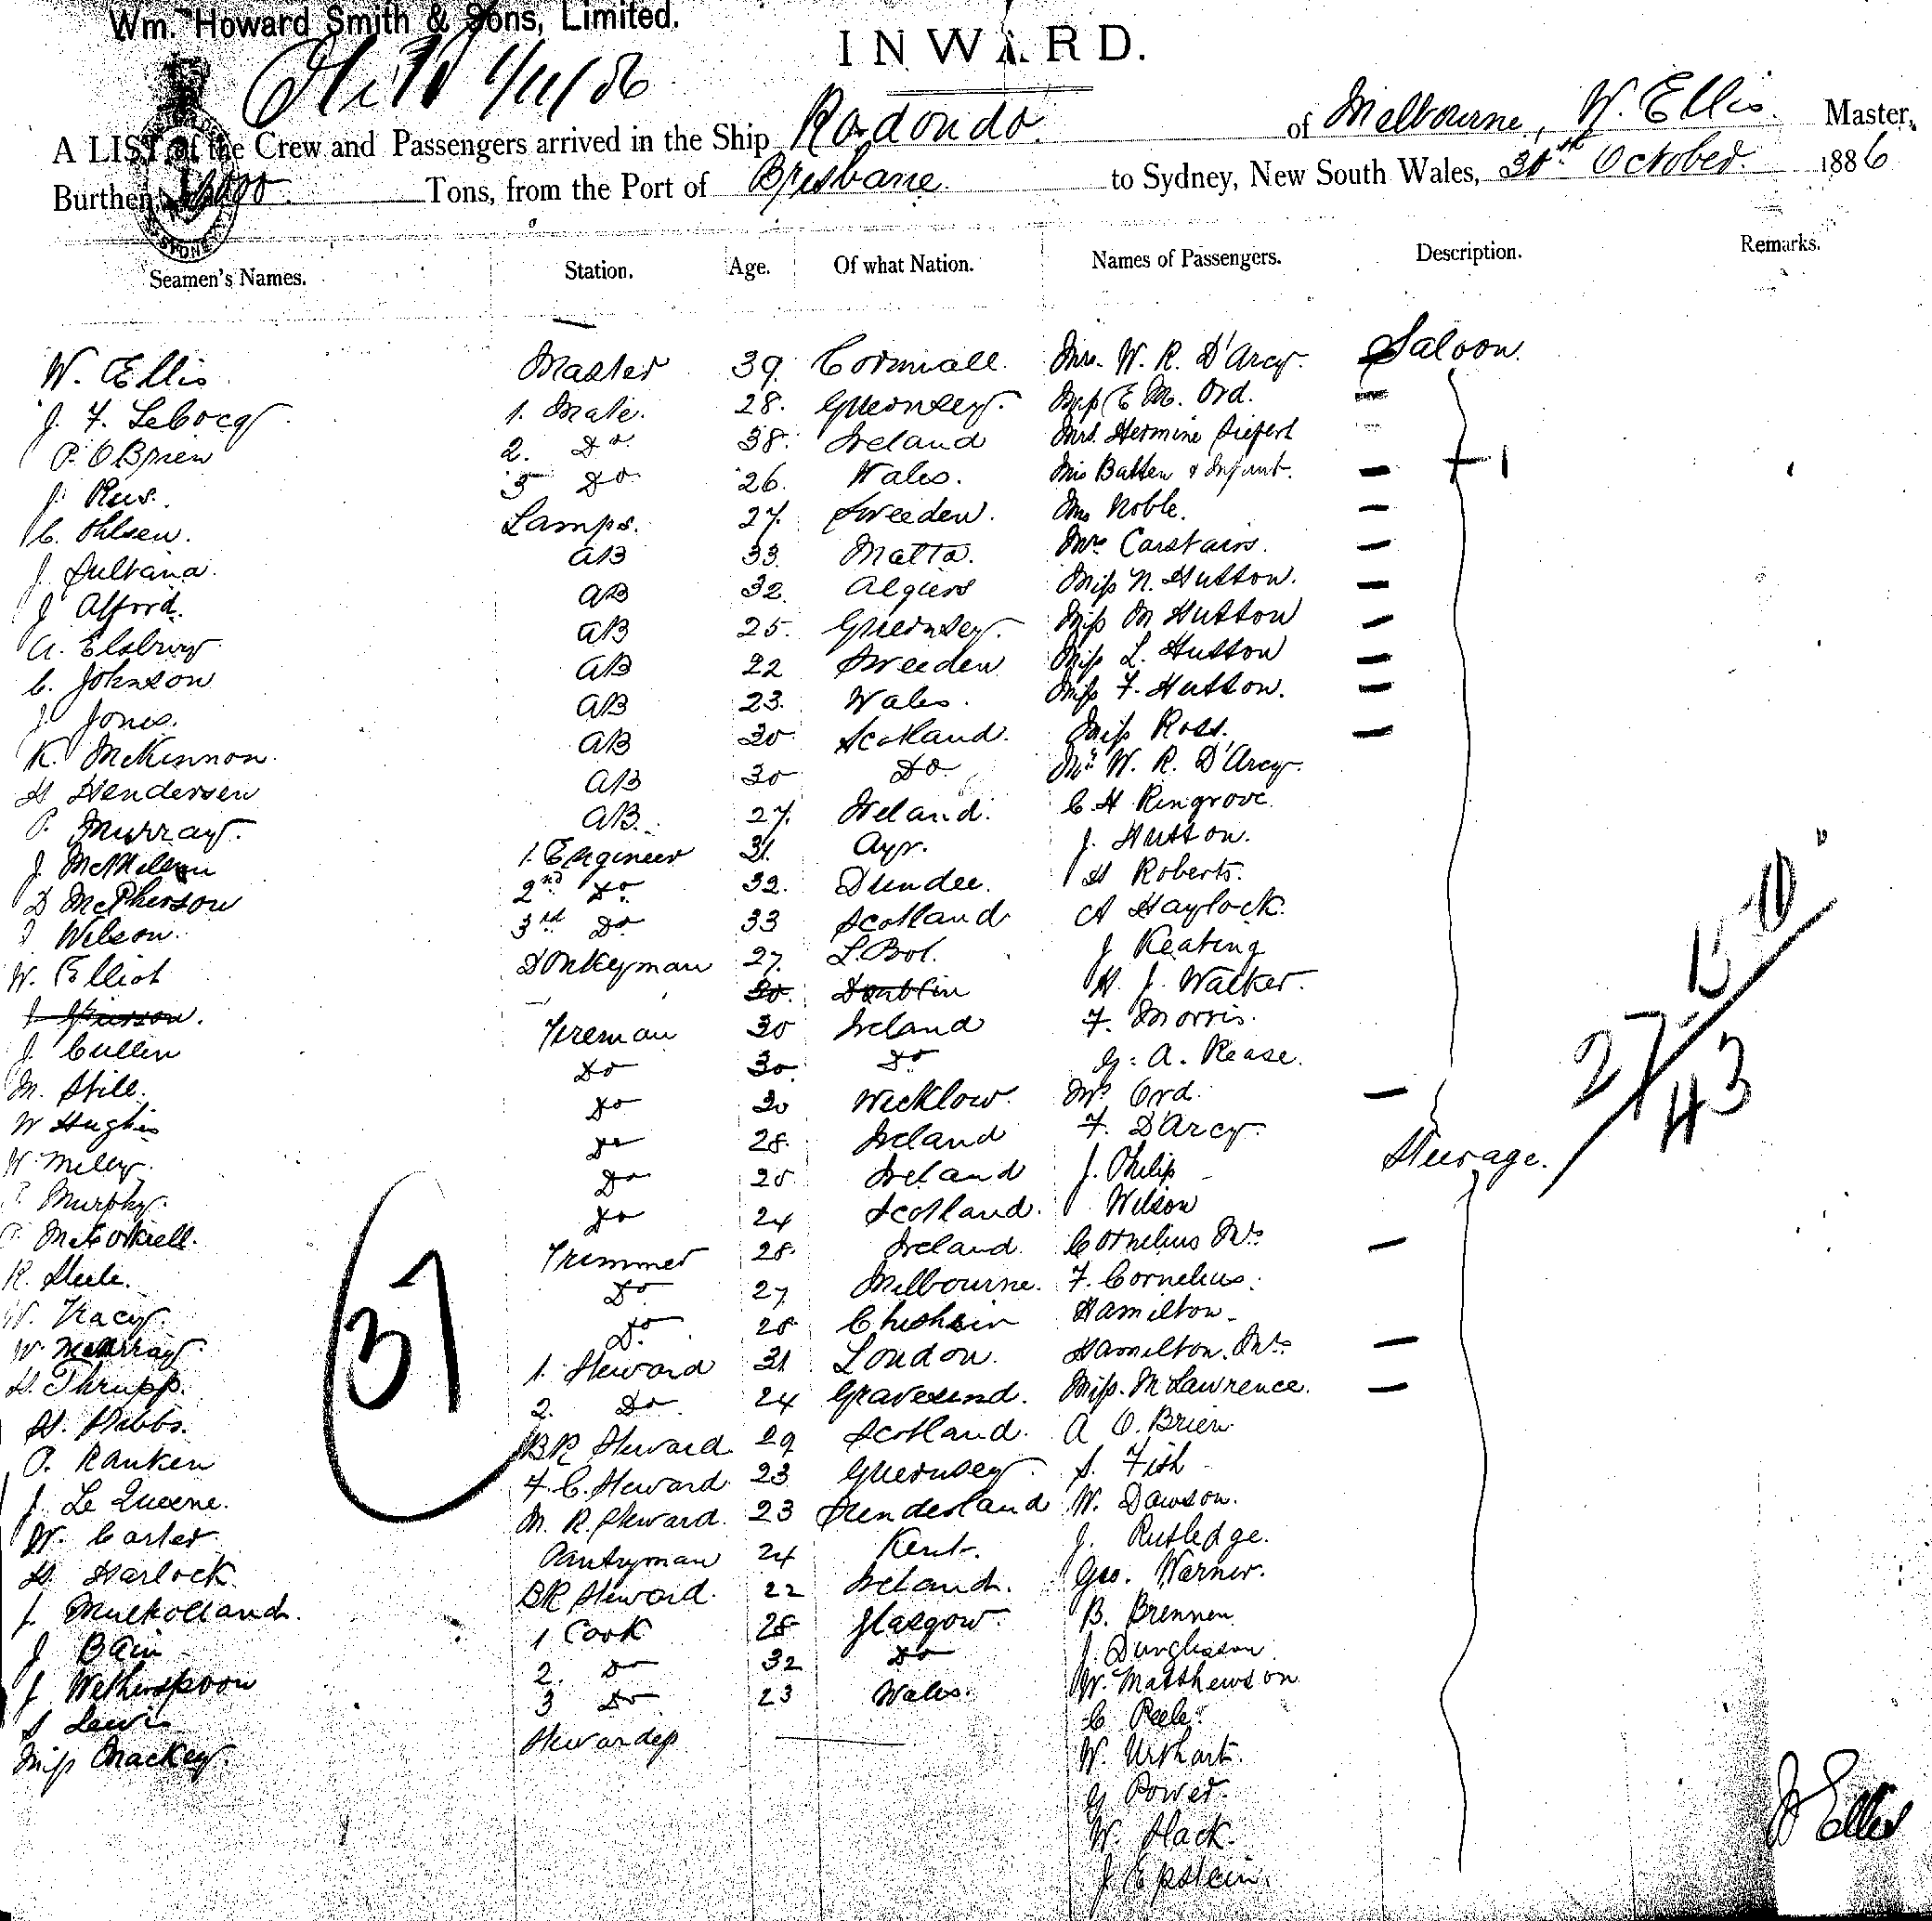 Wm. Howard Smith & Sons, Limited.
INWARD.
1/11/86
A LIST of the Crew and Passengers arrived in the Ship Rodondo of Melbourne, W. Ellis Master,
Burthen 1000 Tons, from the Port of Brisbane to Sydney, New South Wales, 30th October 1886
Seamen's Names. Station. Age. Of what Nation. Names of Passengers. Description. Remarks.
W. Ellis Master 39 Cornwall Mrs. W. R. D'Arcy Saloon
J. F. Lebocq 1. Mate 28 Guernsey Miss E M. Ord.
P. O'Brien 2. Do 38 Ireland Mrs. Hermine Siefert
J. Rees. 3 Do 26 Wales. Mrs Batten & Infant. + 1
C. Ohlsen. Lamps. 27 Sweeden. Mrs Noble.
J. Sultana. AB 33 Malta. Mrs Carstairs.
J Alford. AB 32 Algiers Miss N. Hutton.
A. Elsbury. AB 25. Guernsey. Miss M Hutton
C. Johnson AB 22 Sweeden Miss L. Hutton
J. Jones. AB 23. Wales. Miss F. Hutton.
K. McKinnon. AB 30 Scotland. Miss Ross.
H Hendersen AB 30 Do Mr W. R. D'Arcy.
P. Murray. AB. 27. Ireland. C. H. Ringrove.
J. McMillan 1. Engineer 31. Ayr. J. Hutton.
D McPherson 2nd Do. 32. Dundee. H Roberts.
J Wilson. 3rd Do 33 Scotland A Haylock.
W. Elliot Donkeyman 27. L.Bol. J Keating
30. Dublin H. J. Walker.
J. Cullen Fireman 30 Ireland F. Morris.
M. Still. Do 30 Do G. A. Rease.
W Hughes Do 30 Wicklow. Mrs Ord.
W. Miley. Do 28. Ireland F. D'Arcy.
P. Murphy. Do 28 Ireland J. Philip Steerage.
P. McCorkell. Do 24 Scotland. Wilson
R. Steele. Trimmer 28 Ireland Cornelius Mrs
W. Tracy. Do 27 Melbourne. F. Cornelius.
W. Murray. Do. 28 Hamilton.
H. Thrupp. 1. Steward 31 London. Hamilton. Mrs.
H. Hibbs. 2. Do 24 Gravesend. Miss. M Lawrence.
P. Ranken BR Steward 29 Scotland. A O. Brien
J. Le Queene. F. C. Steward 23 Guernsey. S. Fish
W. Carter M. R. Steward. 23 Sunderland W. Dawson.
H. Harlock. Pantryman 24 Kent. J. Rutledge.
J. Mulholland. BR Steward. 22 Ireland. Geo. Warner.
J Bain 1 Cook 28 Glasgow. B. Brennen
J Wetherspoon 2. Do 32 Do J. Dunglisson
S Lewis 3 Do 23 Wales. W. Matthewson
Miss Mackey. Stewardess C Peele.
W. Urkhart.
G Power.
W. Slack.
J Epstein.
37
15
27
43
W Ellis